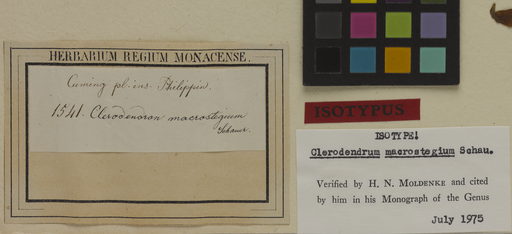 HERBARIUM REGIUM MONACENSE.
Cuming pl. ins. Philippin.
1541. Clerodendron macrostegium
Schauer.
ISOTYPUS
ISOTYPE!
Clerodendrum macrostegium Schau.
Verified by H. N. MOLDENKE and cited
by him in his Monograph of the Genus
July 1975